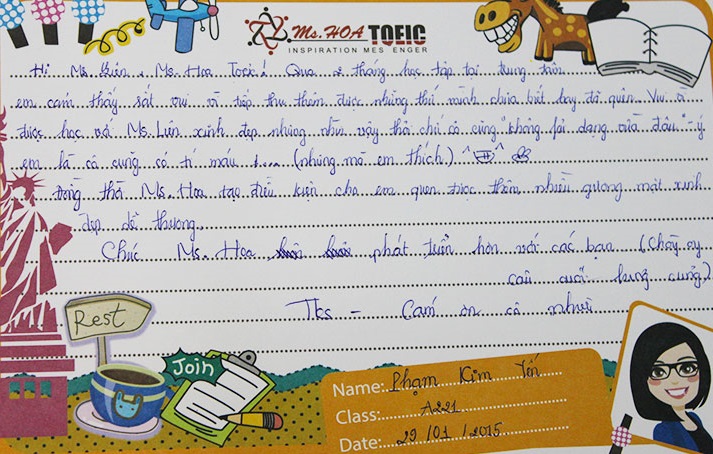 Ms. HOA TOEIC
INSPIRATION MES ENGER
Hi Ms. Liên, Ms. Hoa Toeic! Qua 2 tháng học tập tại trung tâm
em cảm thấy rất vui vì tiếp thu thêm được những thứ mình chưa biết hay đã quên. Vui vì
được học với Ms. Liên xinh đẹp nhưng nhìn vậy thôi chứ cô cũng "không fải dạng vừa đâu" - ý
em là cô cũng có tí máu .... (nhưng mà em thích). ^^
đồng thời Ms. Hoa tạo điều kiện cho em quen được thêm nhiều gương mặt xinh
đẹp dễ thương.
Chúc Ms. Hoa phát triển hơn với các bạn (Chỗ ấy
câu cuối lủng củng)
Tks - Cảm ơn cô nhiều
Rest
Join
Name: Phạm Kim Yến
Class: A221
Date: 29/01/2015